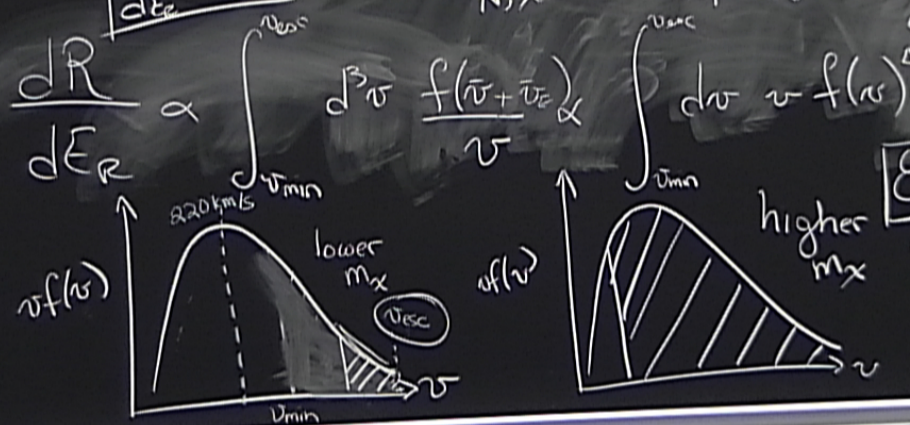 dR/dE_R ∝ ∫_{v_min}^{v_esc} d³v f(v̄ + v̄_E)/v ∝ ∫_{v_min}^{v_esc} dv v f(v)
220 km/s
lower
m_χ
v_esc
vf(v)
v
v_min
higher
m_χ
vf(v)
v